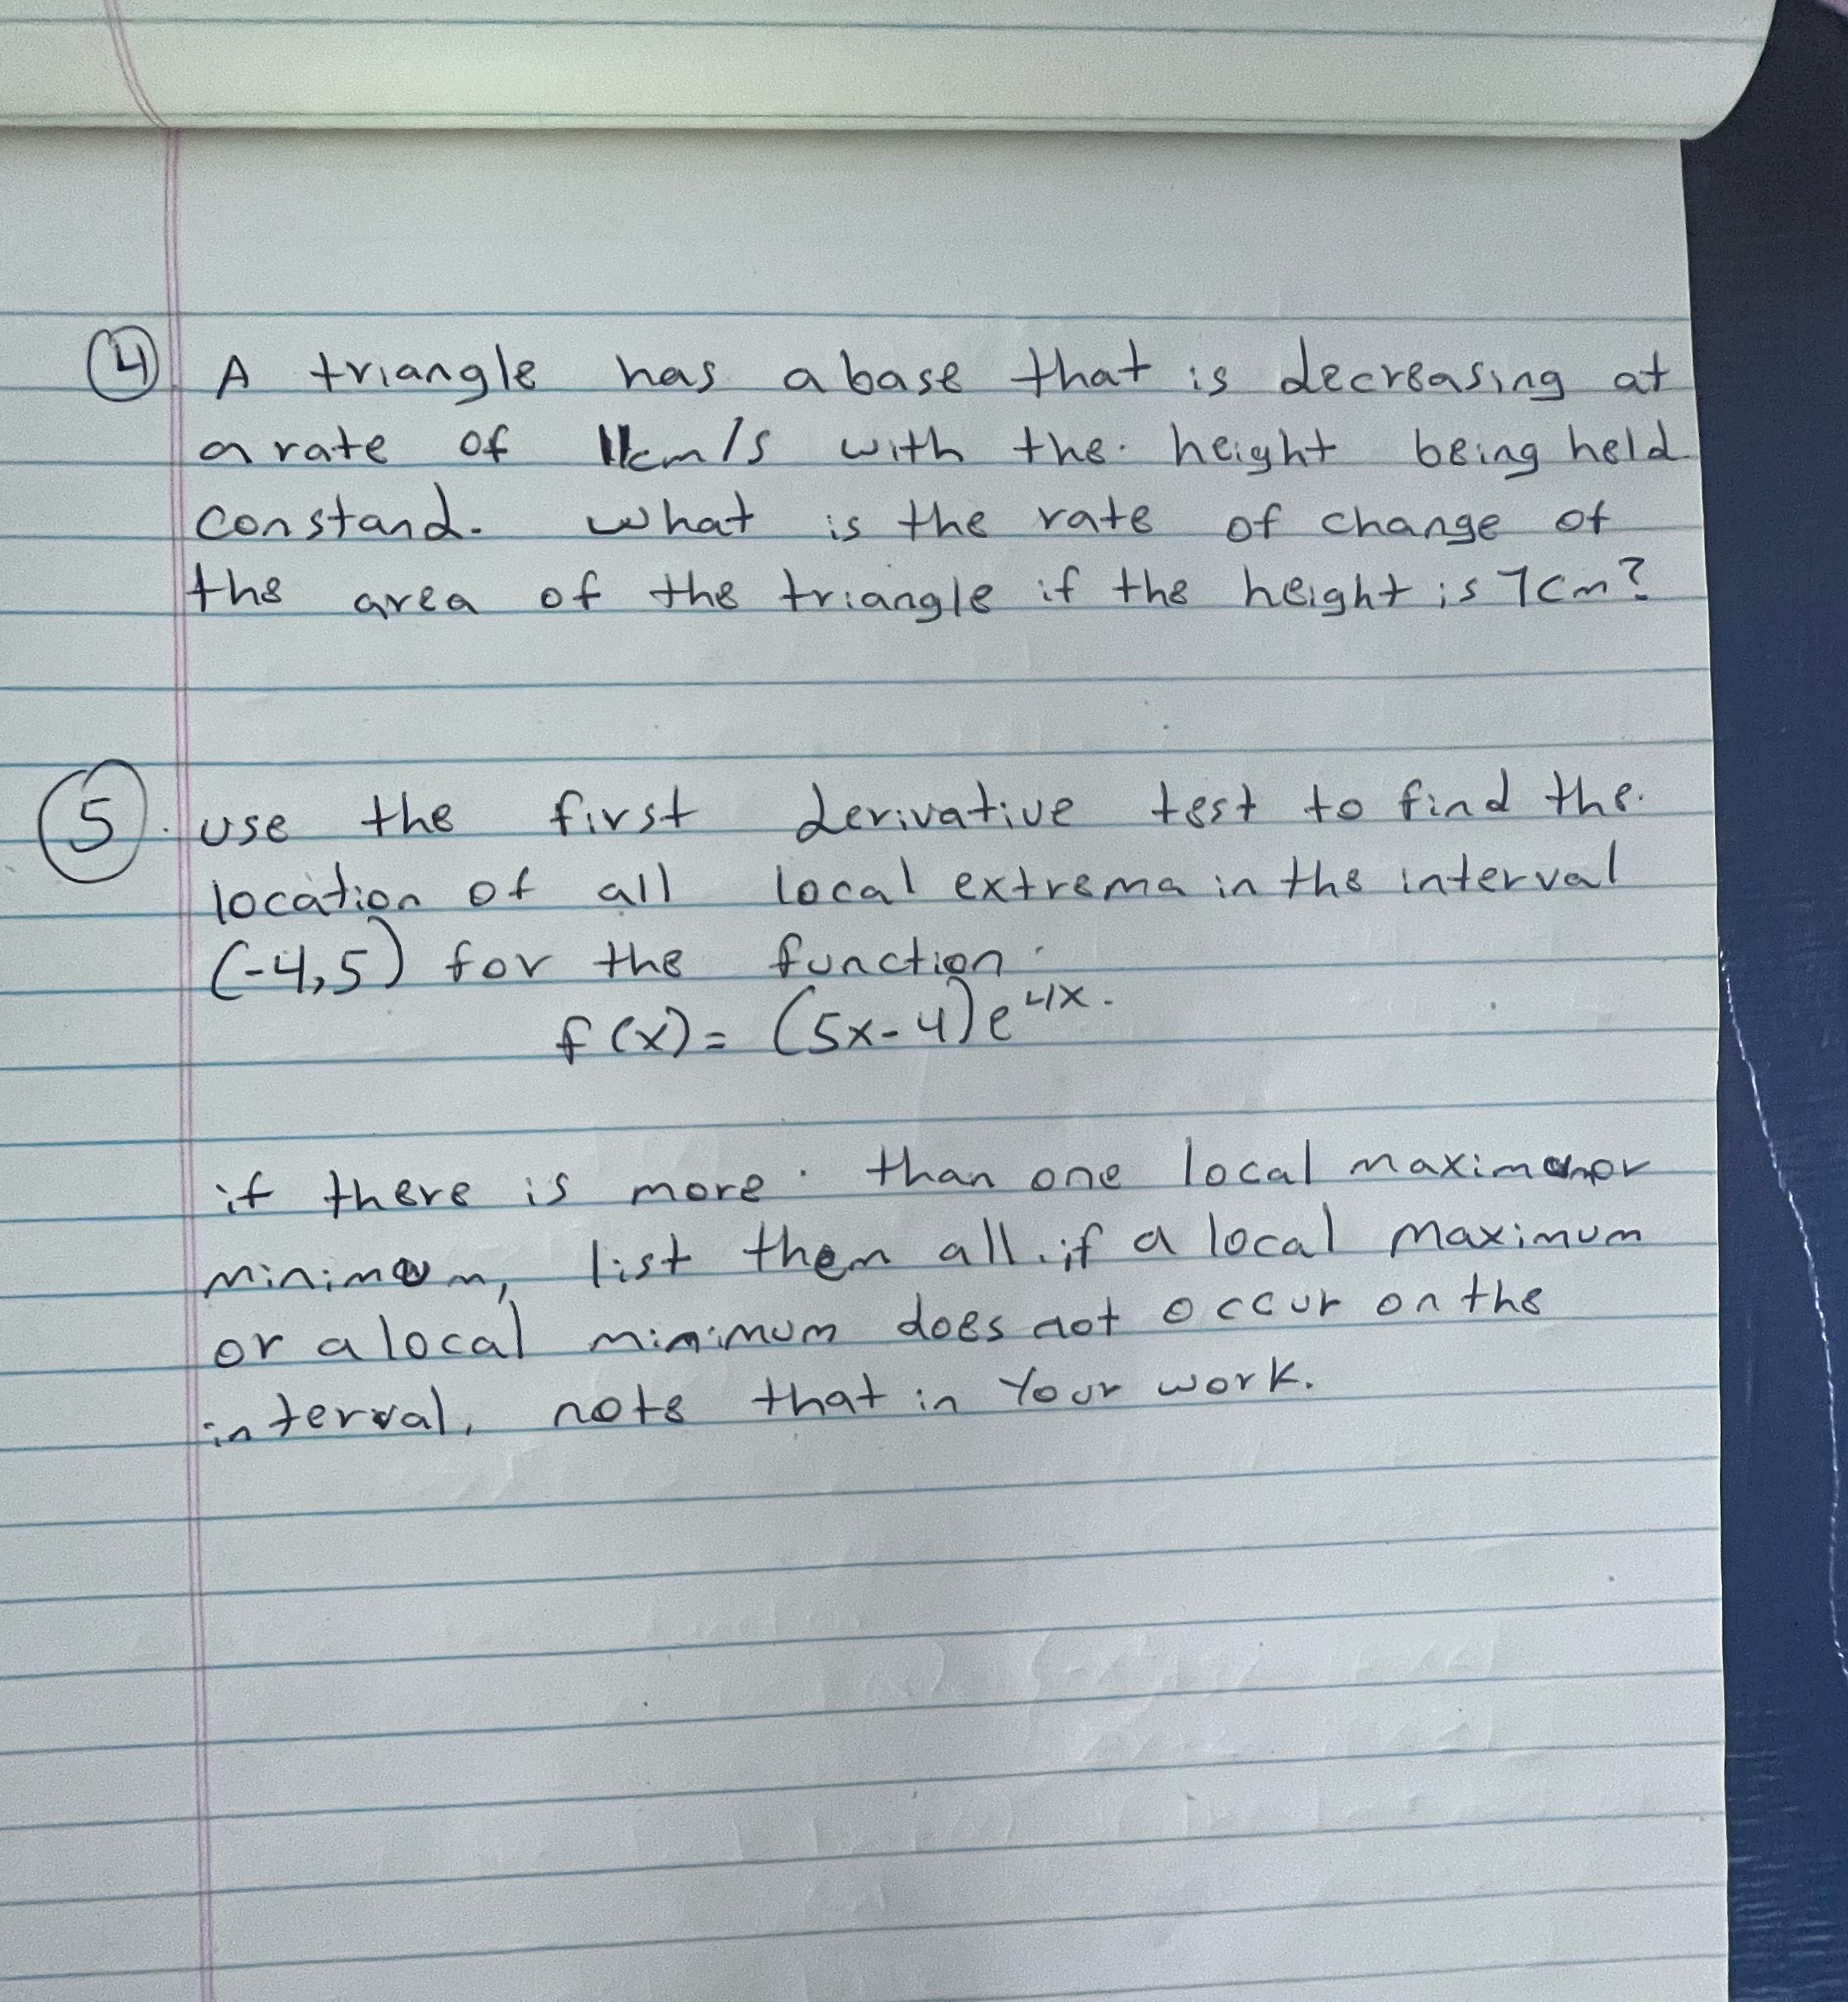 4. A triangle has a base that is decreasing at
a rate of 11cm/s with the height being held
constand. what is the rate of change of
the area of the triangle if the height is 7cm?
5. use the first derivative test to find the
location of all local extrema in the interval
(-4,5) for the function
f(x) = (5x-4)e^4x.
if there is more than one local maximum or
minimum, list them all. if a local maximum
or a local minimum does not occur on the
interval, note that in your work.